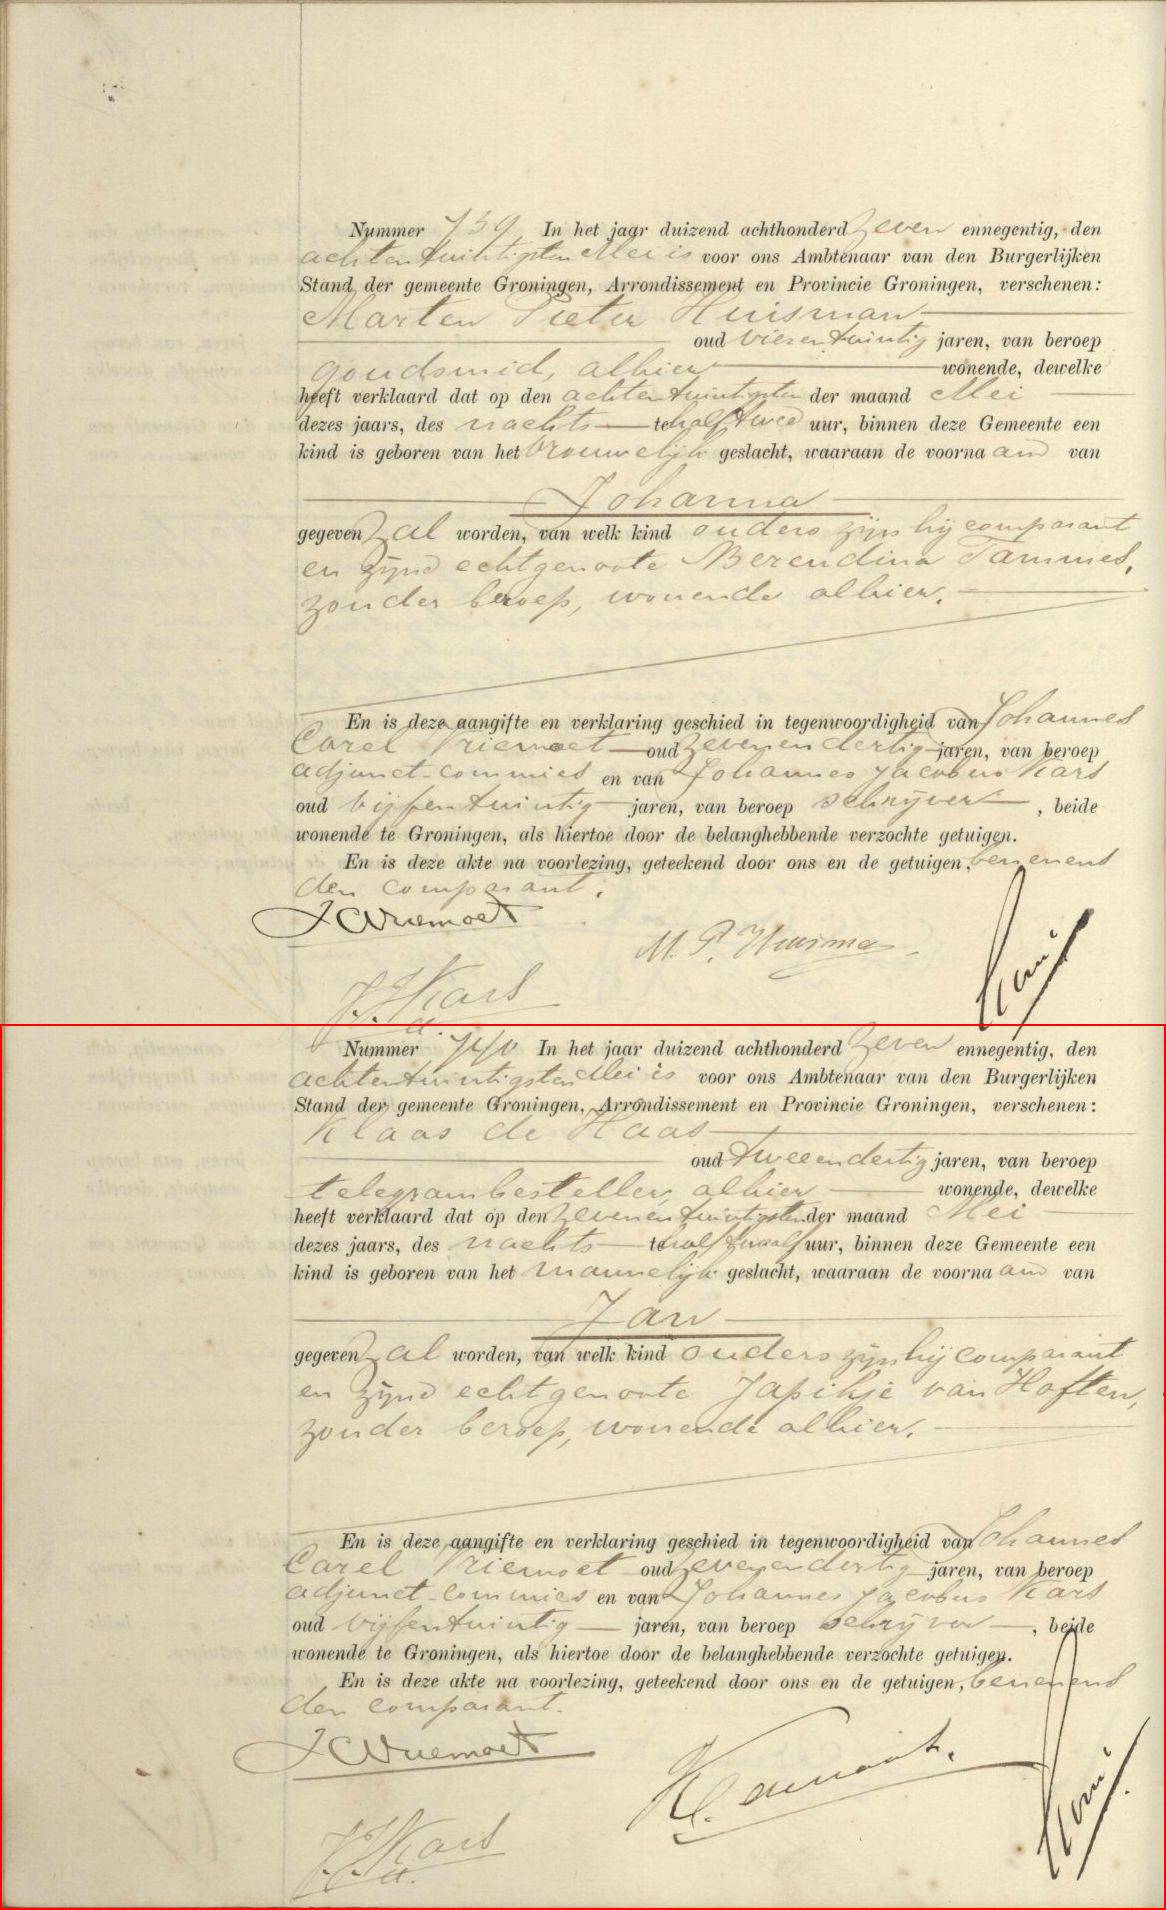 Nummer 739 In het jaar duizend achthonderd zeven ennegentig, den
achtentwintigsten Mei is voor ons Ambtenaar van den Burgerlijken
Stand der gemeente Groningen, Arrondissement en Provincie Groningen, verschenen:
Marten Pieter Huisman
oud vierentwintig jaren, van beroep
goudsmid, alhier wonende, dewelke
heeft verklaard dat op den achtentwintigsten der maand Mei
dezes jaars, des nachts te half twee uur, binnen deze Gemeente een
kind is geboren van het vrouwelijk geslacht, waaraan de voornaam van
Johanna
gegeven zal worden, van welk kind ouders zijn hij comparant
en zijne echtgenoote Berendina Tammes,
zonder beroep, wonende alhier.
En is deze aangifte en verklaring geschied in tegenwoordigheid van Johannes
Carel Vriemoet oud zevenendertig jaren, van beroep
adjunct-commies en van Johannes Jacobus Kars
oud vijfentwintig jaren, van beroep schrijver, beide
wonende te Groningen, als hiertoe door de belanghebbende verzochte getuigen.
En is deze akte na voorlezing, geteekend door ons en de getuigen, benevens
den comparant.
J C Vriemoet
M. P. Huisman
J. J. Kars
Nummer 740 In het jaar duizend achthonderd zeven ennegentig, den
achtentwintigsten Mei is voor ons Ambtenaar van den Burgerlijken
Stand der gemeente Groningen, Arrondissement en Provincie Groningen, verschenen:
Klaas de Haas
oud tweeendertig jaren, van beroep
telegrambesteller, alhier wonende, dewelke
heeft verklaard dat op den zevenentwintigsten der maand Mei
dezes jaars, des nachts te half twaalf uur, binnen deze Gemeente een
kind is geboren van het mannelijk geslacht, waaraan de voornaam van
Jan
gegeven zal worden, van welk kind ouders zijn hij comparant
en zijne echtgenoote Japikje van Hoften,
zonder beroep, wonende alhier.
En is deze aangifte en verklaring geschied in tegenwoordigheid van Johannes
Carel Vriemoet oud zevenendertig jaren, van beroep
adjunct-commies en van Johannes Jacobus Kars
oud vijfentwintig jaren, van beroep schrijver, beide
wonende te Groningen, als hiertoe door de belanghebbende verzochte getuigen.
En is deze akte na voorlezing, geteekend door ons en de getuigen, benevens
den comparant.
J C Vriemoet
J. J. Kars